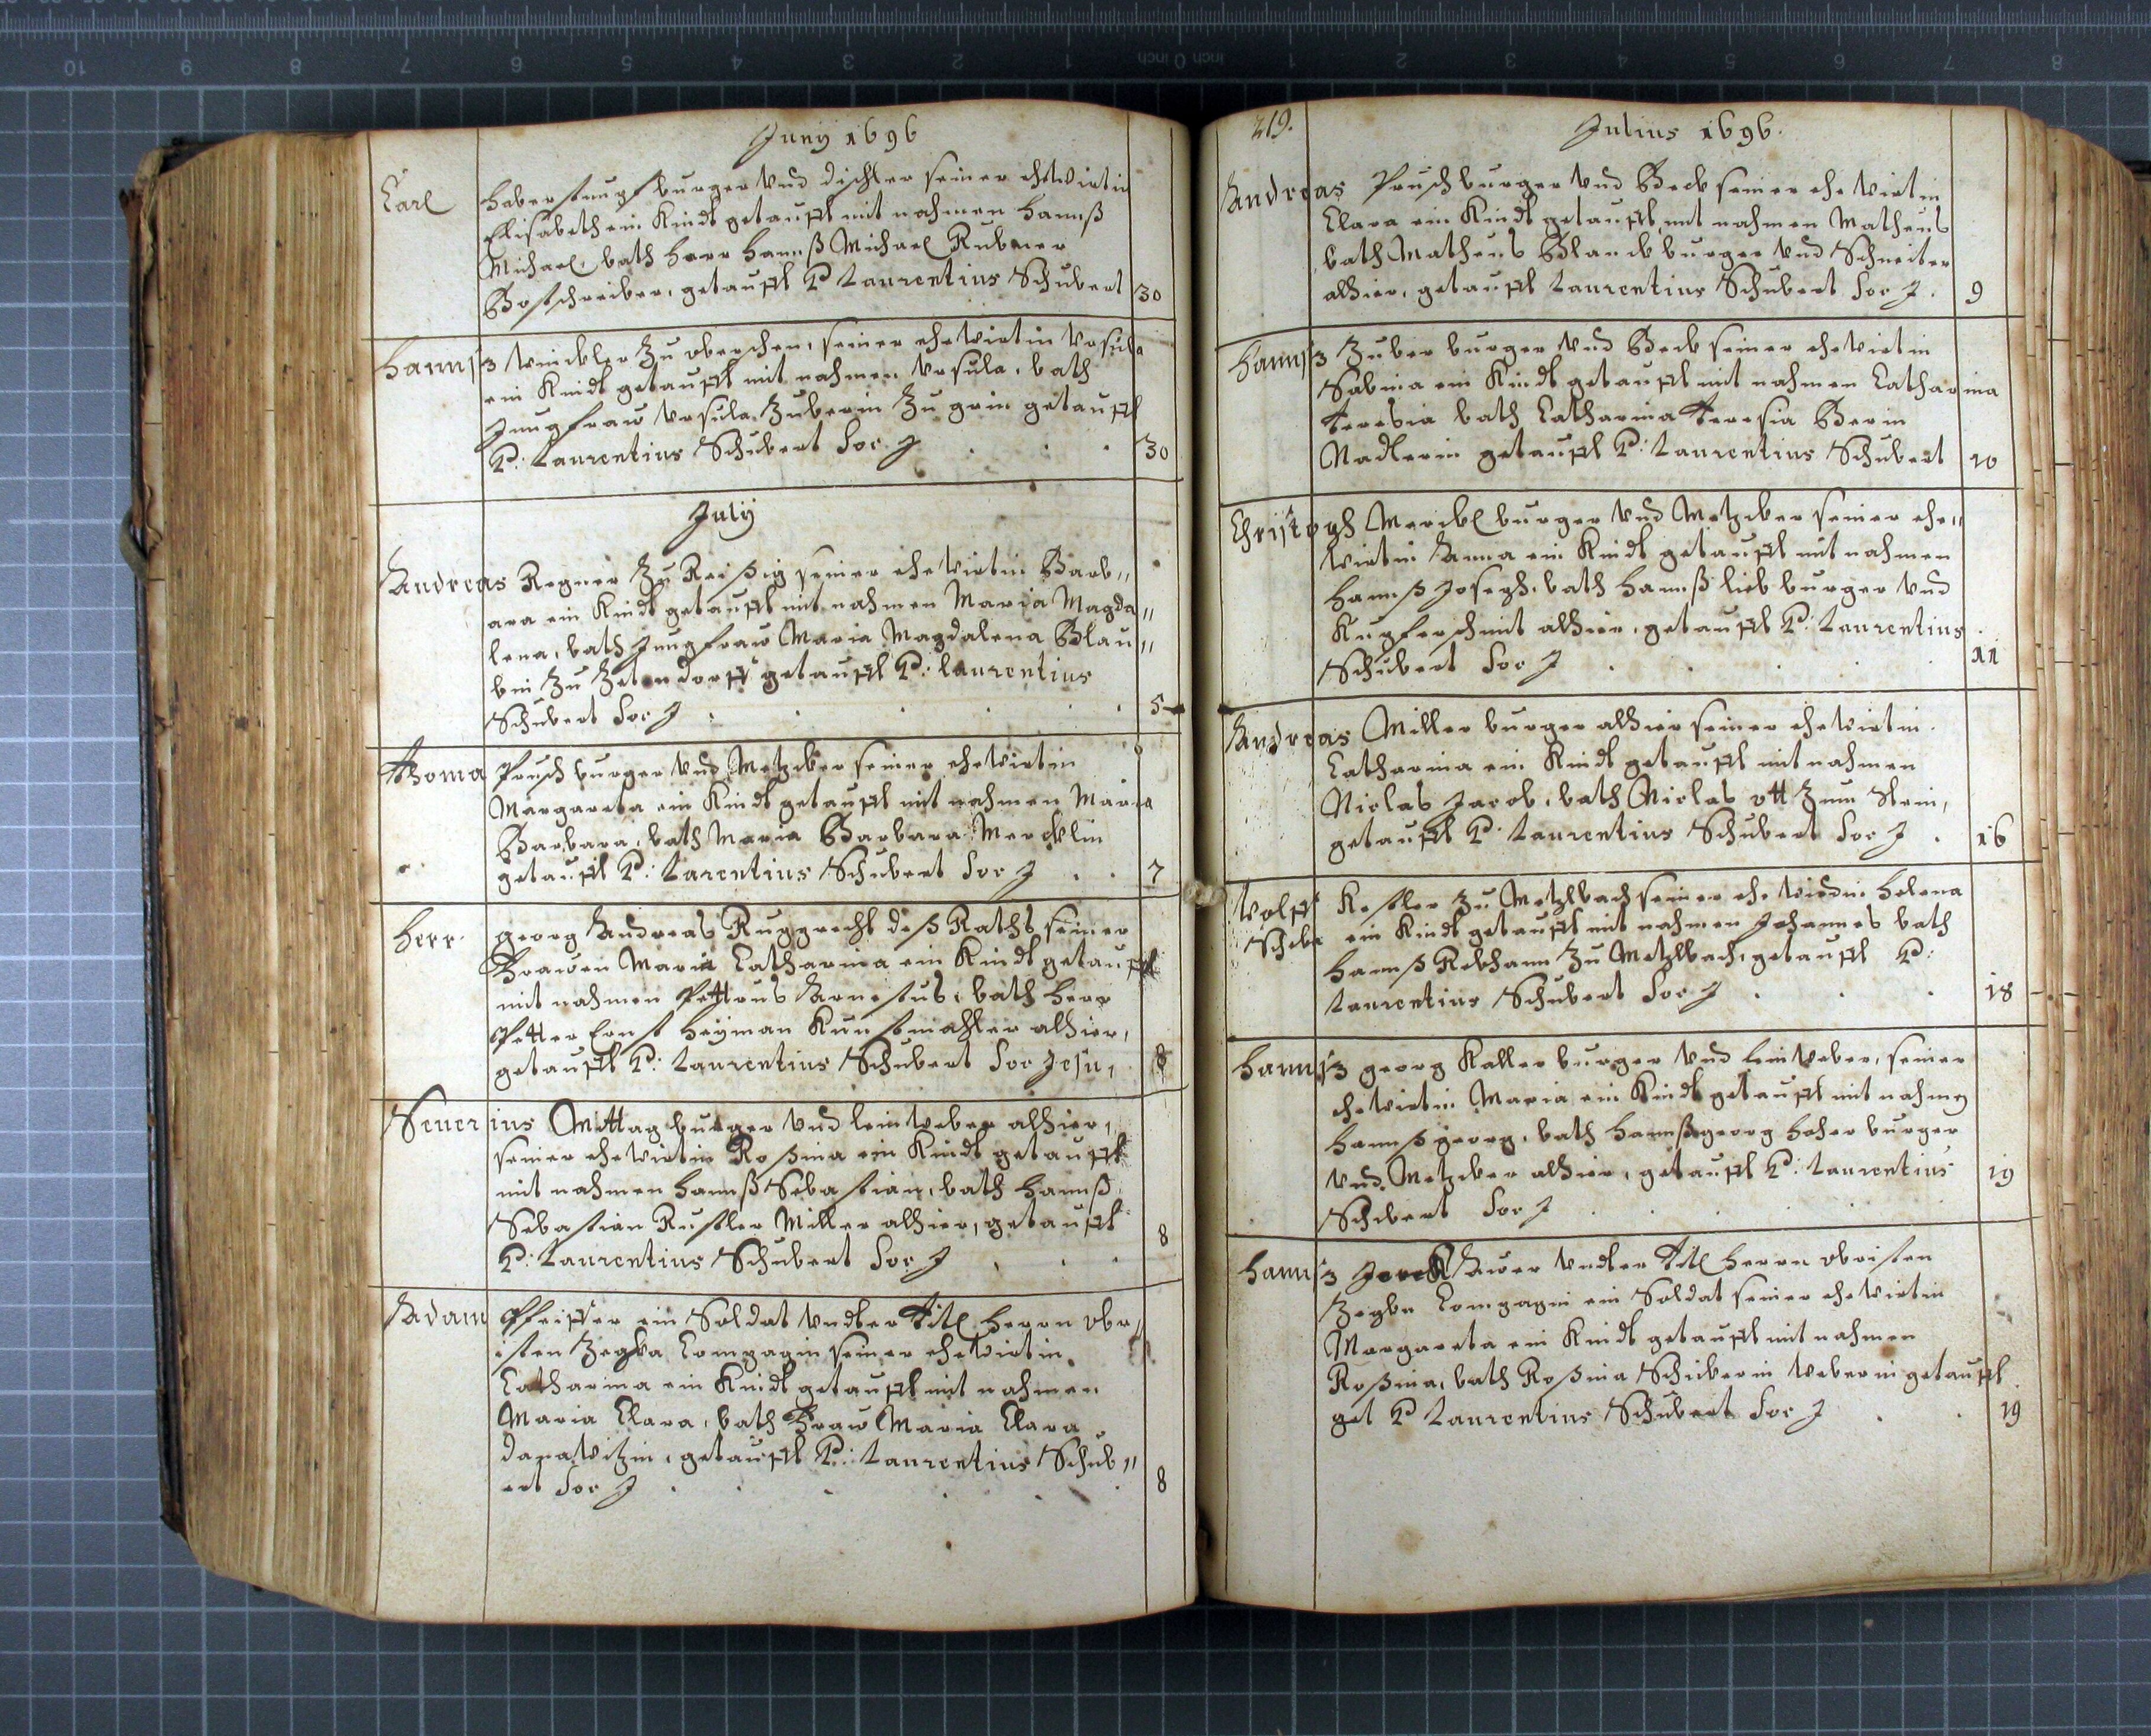 Juny 1696
Carl haberstumpf burger vnd dischler seiner ehewirtin
Elisabeth ein Kindt getaufft mit nahmen hannß
Michael, bath herr hannß Michael Rubner
Bostschreiber, getaufft P Laurentius Schubert 30
hannß winckler Zu oberschen, seiner ehewirtin Vrsula
ein Kindt getaufft mit nahmen Vrsula, bath
Jungfraw Vrsula Zuberin Zu grin getaufft
P: Laurentius Schubert Soc J 30
July
Andreas Regner Zu Reißig seiner ehewirtin Barb„
ara ein Kindt getaufft mit nahmen Maria Magda„
lena, bath Jungfraw Maria Magdalena Blau„
bin Zu Zetendorff getaufft P: laurentius
Schubert Soc J 5
Thoma Prusch burger vnd Metzcker seiner ehewirtin
Margareta ein Kindt getaufft mit nahmen Maria
Barbara, bath Maria Barbara Mercklin
getaufft P: Larentius Schubert Soc J 7
herr georg Andreas Rupprecht deß Raths seiner
Frawen Maria Catharina ein Kindt getaufft
mit nahmen Pettrus Arnestus, bath herr
Petter Ernst heÿman Kunstmahler alhier,
getaufft P: Laurentius Schubert Soc Jesu, 8
Seuerius Mittag burger vnd leinweber alhier,
seiner ehewirtin Roßina ein Kindt getaufft
mit nahmen hannß Sebastian, bath hannß
Sebastian Rustler Miller alhier, getaufft
P: Laurentius Schubert Soc J 8
Adam Pfeiffer ein Soldat vndter Titl herrn obr„
isten Compagin seiner ehewirtin
Catharina ein Kindt getaufft mit nahmen
Maria Clara, bath Fraw Maria Clara
getaufft P: Laurentius Schub„
ert Soc J 8
219. Julius 1696.
Andreas Prusch burger vnd Beck seiner ehewirtin
Clara ein Kindt getaufft mit nahmen Matheus
bath Matheus Blanck burger vnd Schneiter
alhier, getaufft Laurentius Schubert Soc J. 9
hannß Zuber burger vnd Beck seiner ehewirtin
Sabina ein Kindt getaufft mit nahmen Catharina
Teresia bath Catharina Teresia Berin
Nadlerin getaufft P: Laurentius Schubert 10
Christoph Merckl burger vnd Metzcker seiner ehe„
wirtin Anna ein Kindt getaufft mit nahmen
hannß Joseph, bath hannß lieb burger vnd
Kupferschmit alhier, getaufft P: Laurentius
Schubert Soc J 11
Andreas Miller burger alhier seiner ehewirtin
Catharina ein Kindt getaufft mit nahmen
Niclas Jacob, bath Niclas ott Zum Stein,
getaufft P: Laurentius Schubert Soc J. 16
Wolff Kestler Zu Metzlbach seiner ehewirdin helena
ein Kindt getaufft mit nahmen Johannes bath
hannß Rebhann Zu Metzlbach, getaufft P:
Laurentius Schubert Soc J 18
hannß georg Kaller burger vnd leinweber, seiner
ehewirtin Maria ein Kindt getaufft mit nahmen
hannß georg, bath hannß georg hoher burger
vnd Metzcker alhier, getaufft P: Laurentius 19
Schubert Soc J
hannß vndter Titl herrn obristen
Compagin ein Soldat seiner ehewirtin
Margareta ein Kindt getaufft mit nahmen
Roßina, bath Roßina Schiberin weberin getaufft
get P Laurentius Schubert Soc J 19